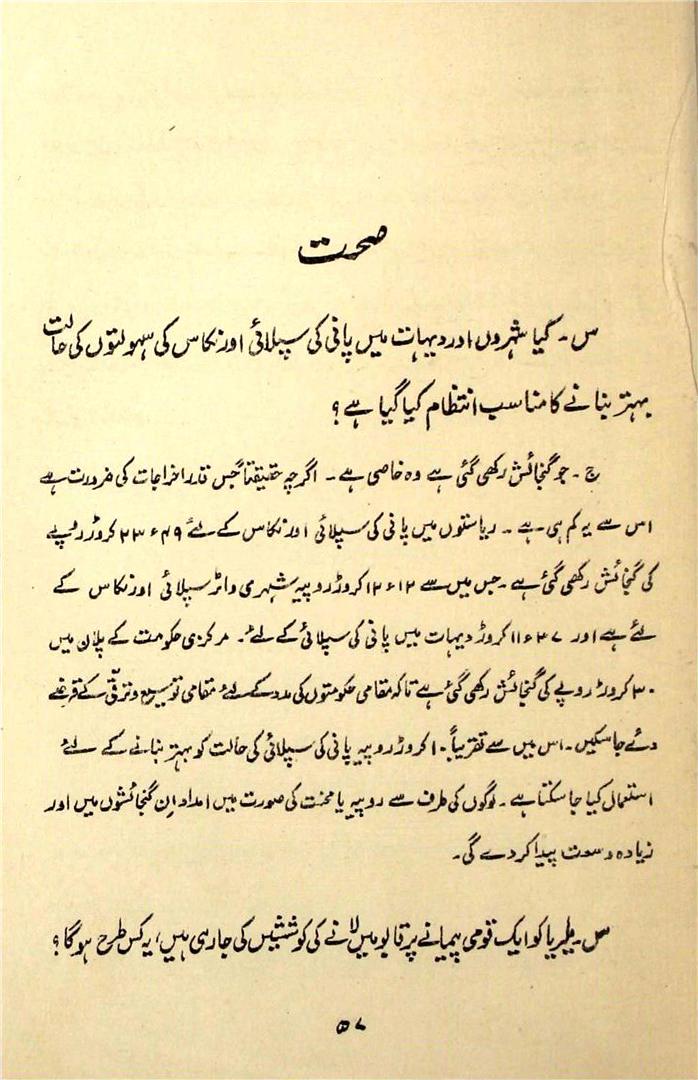 صحت
س ۔ کیا شہروں اور دیہات میں پانی کی سپلائی اور نکاس کی سہولتوں کی حالت
بہتر بنانے کا مناسب انتظام کیا گیا ہے ؟
ج ۔ جو گنجائش رکھی گئی ہے وہ خاصی ہے ۔ اگرچہ حقیقتاً جس قدر اخراجات کی ضرورت ہے
اس سے یہ کم ہی ہے ۔ ریاستوں میں پانی کی سپلائی اور نکاس کے لئے ۲۳ء۴۹ کروڑ روپے
کی گنجائش رکھی گئی ہے ۔ جس میں سے ۱۲ء۱۲ کروڑ روپیہ شہری واٹر سپلائی اور نکاس کے
لئے ہے اور ۱۱ء۳۷ کروڑ دیہات میں پانی کی سپلائی کے لئے ۔ مرکزی حکومت کے پلان میں
۳۰ کروڑ روپے کی گنجائش رکھی گئی ہے تاکہ مقامی حکومتوں کی مدد کے لئے مقامی توسیع و ترقی کے قرضے
دئے جا سکیں ۔ اس میں سے تقریباً ۱۰ کروڑ روپیہ پانی کی سپلائی کی حالت کو بہتر بنانے کے لئے
استعمال کیا جا سکتا ہے ۔ لوگوں کی طرف سے روپیہ یا محنت کی صورت میں امداد ان گنجائشوں میں اور
زیادہ وسعت پیدا کر دے گی ۔
س ۔ ملیریا کو ایک قومی پیمانے پر قابو میں لانے کی کوششیں کی جا رہی ہیں، یہ کس طرح ہوگا ؟
۵۷